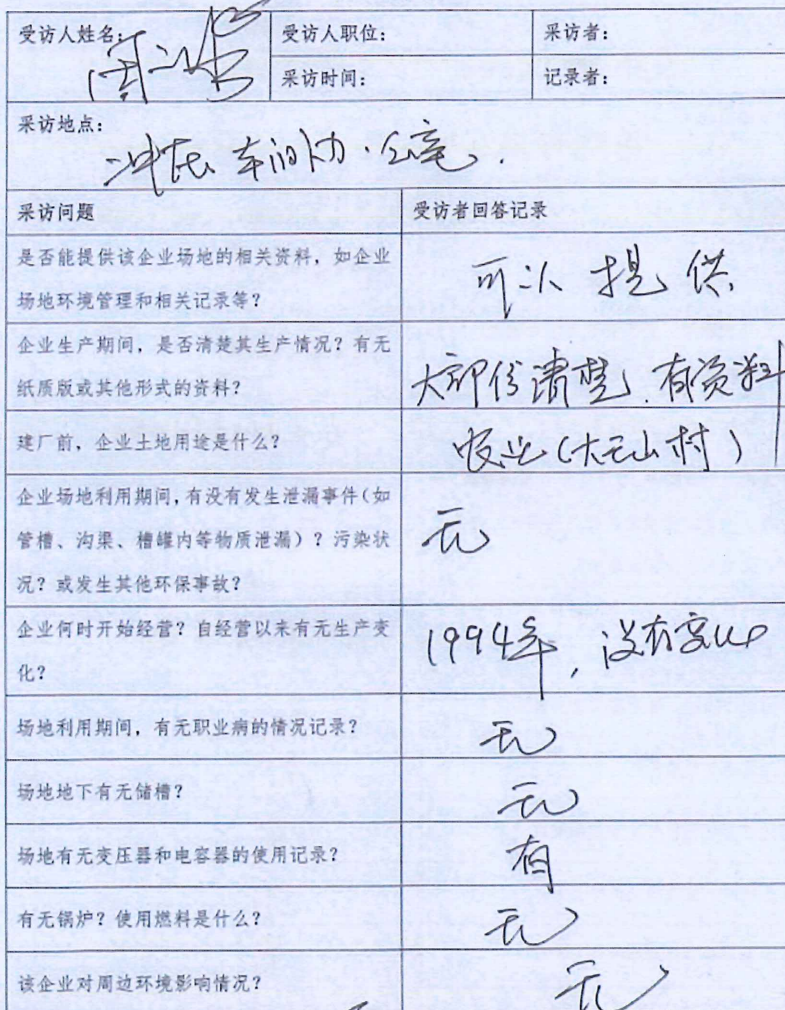 受访人姓名:
受访人职位:
采访者:
采访时间:
记录者:
采访地点:
冲压车间办公室.
采访问题
受访者回答记录
是否能提供该企业场地的相关资料,如企业
场地环境管理和相关记录等?
可以提供
企业生产期间,是否清楚其生产情况?有无
纸质版或其他形式的资料?
大部份清楚.有资料
建厂前,企业土地用途是什么?
农业(大云山村)
企业场地利用期间,有没有发生泄漏事件(如
管槽、沟渠、槽罐内等物质泄漏)?污染状
况?或发生其他环保事故?
无
企业何时开始经营?自经营以来有无生产变
化?
1994年,没有变化
场地利用期间,有无职业病的情况记录?
无
场地地下有无储槽?
无
场地有无变压器和电容器的使用记录?
有
有无锅炉?使用燃料是什么?
无
该企业对周边环境影响情况?
无